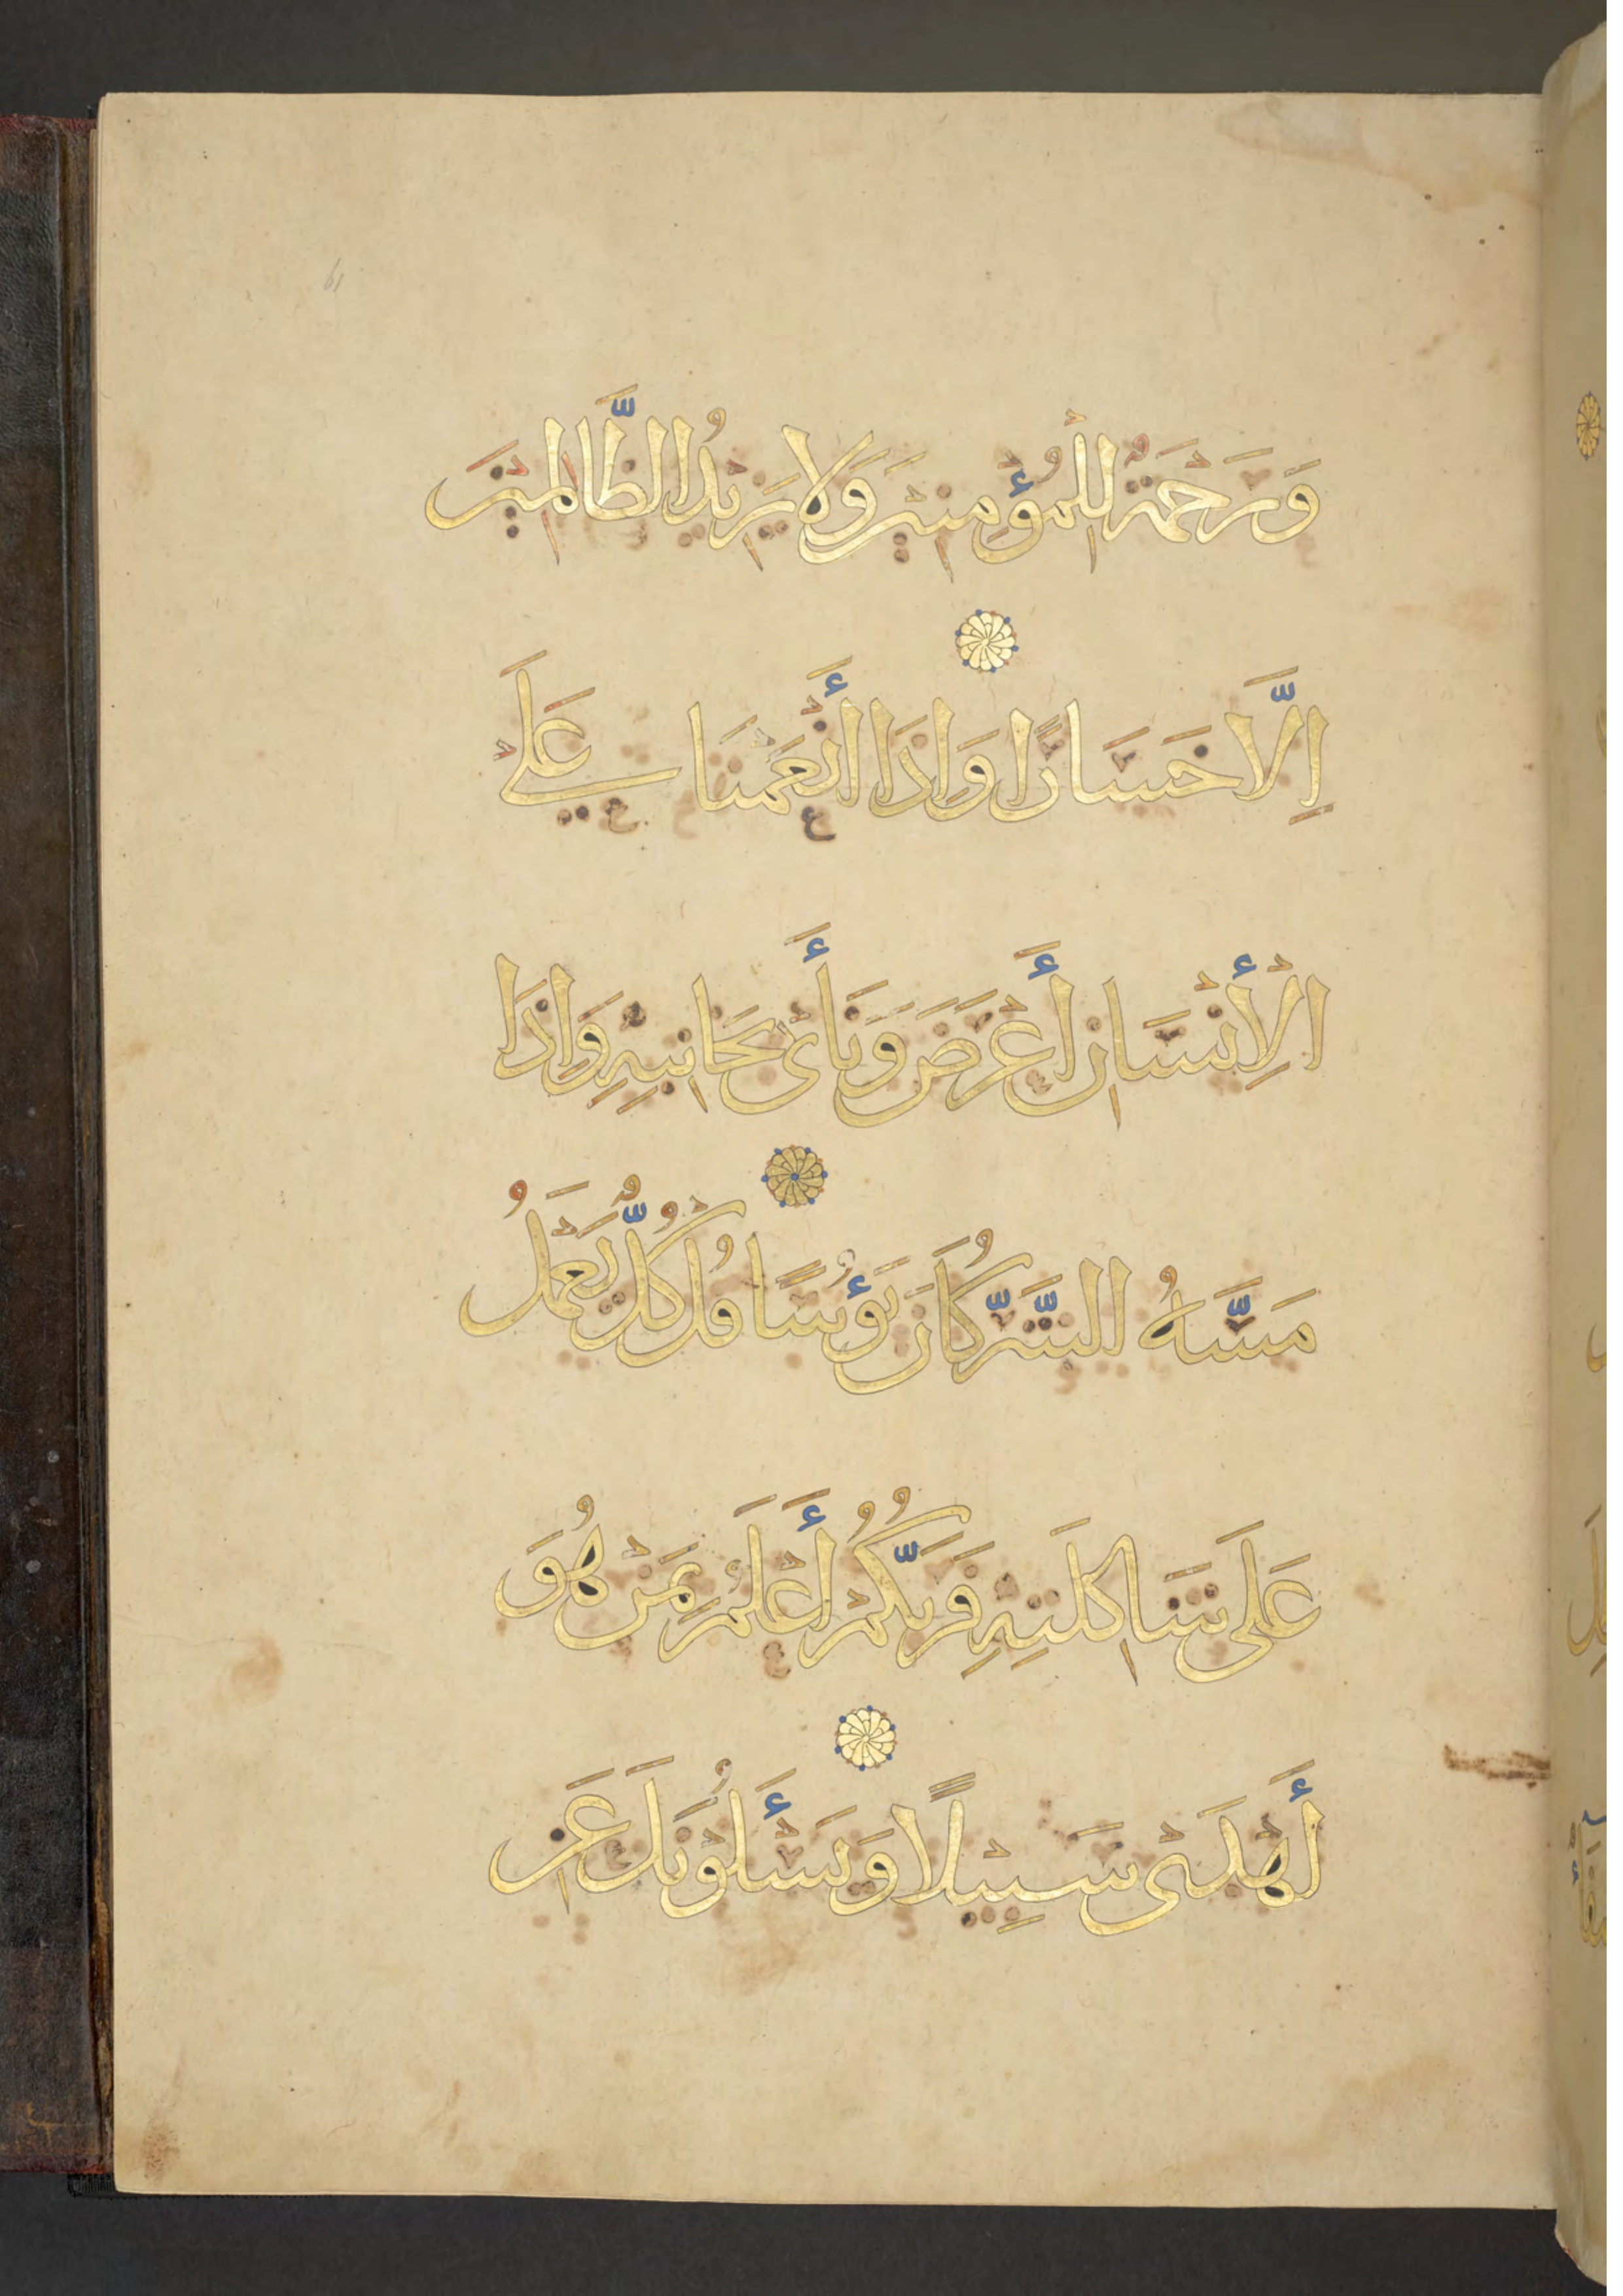 وَرَحْمَةٌ لِلْمُؤْمِنِينَ وَلَا يَزِيدُ الظَّالِمِينَ
اِلَّا خَسَارًا وَاِذَا أَنْعَمْنَا عَلَى
الْأِنْسَانِ أَعْرَضَ وَنَأَى بِجَانِبِهِ وَاِذَا
مَسَّهُ الشَّرُّ كَانَ يَؤُسًا قُلْ كُلٌّ يَعْمَلُ
عَلَى شَاكِلَتِهِ فَرَبُّكُمْ أَعْلَمُ بِمَنْ هُوَ
أَهْدَى سَبِيلًا وَيَسْأَلُوْنَكَ عَنِ